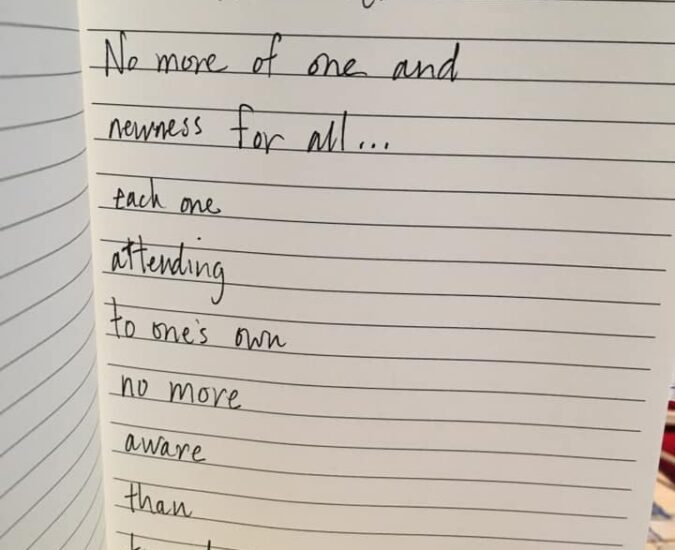 No more of one and
newness for all...
each one
attending
to one's own
no more
aware
than